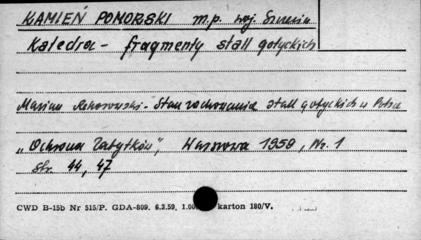 KAMIEŃ POMORSKI m.p. woj. Szczecin
Katedra - fragmenty stall gotyckich
Marian Rehorowski - Stan zachowania stall gotyckich w Polsce
"Ochrona Zabytków", Warszawa 1959, Nr. 1
str. 44, 47
CWD B-15b Nr 515/P. GDA-809. 6.2.59, 1.00 karton 180/V.